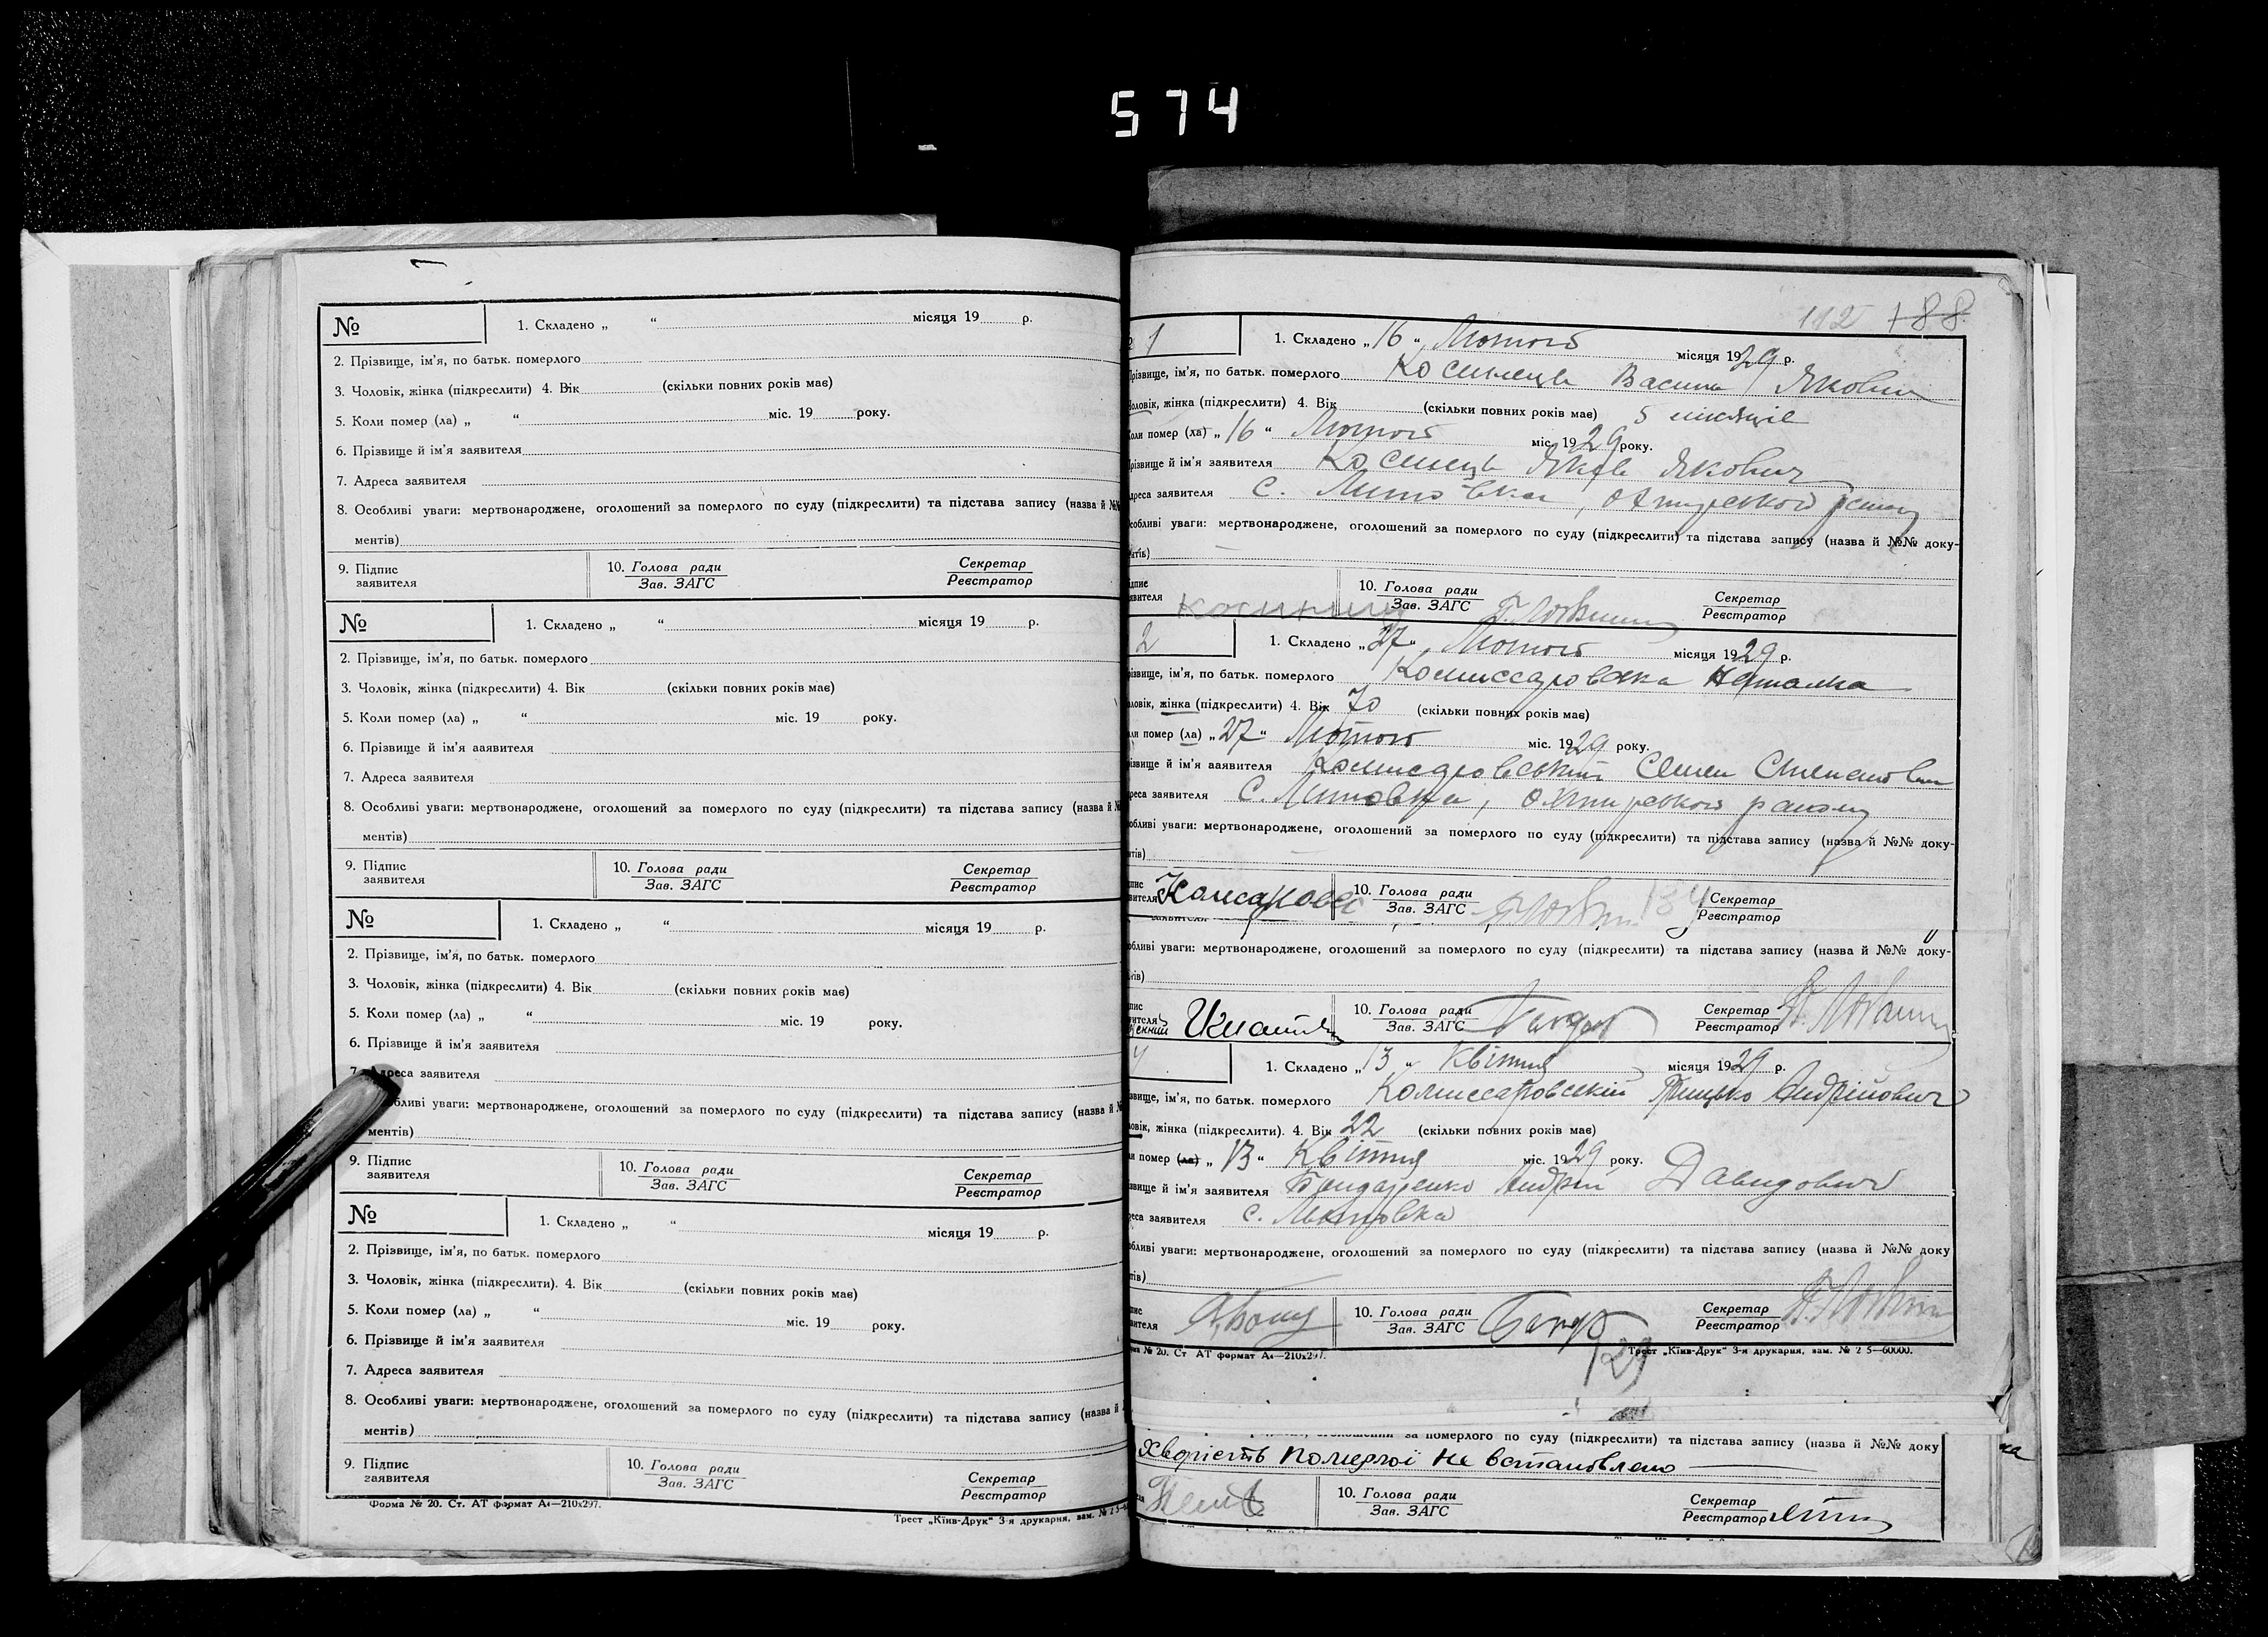 574
№ 1. Складено „ “ місяця 19 р.
2. Прізвище, ім'я, по батьк. померлого
3. Чоловік, жінка (підкреслити) 4. Вік (скільки повних років має)
5. Коли помер (ла) „ “ міс. 19 року.
6. Прізвище й ім'я заявителя
7. Адреса заявителя
8. Особливі уваги: мертвонароджене, оголошений за померлого по суду (підкреслити) та підстава запису (назва й №№
ментів)
9. Підпис заявителя 10. Голова ради Зав. ЗАГС Секретар Реєстратор
№ 1. Складено „ “ місяця 19 р.
2. Прізвище, ім'я, по батьк. померлого
3. Чоловік, жінка (підкреслити) 4. Вік (скільки повних років має)
5. Коли помер (ла) „ “ міс. 19 року.
6. Прізвище й ім'я ааявителя
7. Адреса заявителя
8. Особливі уваги: мертвонароджене, оголошений за померлого по суду (підкреслити) та підстава запису (назва й №
ментів)
9. Підпис заявителя 10. Голова ради Зав. ЗАГС Секретар Реєстратор
№ 1. Складено „ “ місяця 19 р.
2. Прізвище, ім'я, по батьк. померлого
3. Чоловік, жінка (підкреслити) 4. Вік (скільки повних років має)
5. Коли помер (ла) „ “ міс. 19 року.
6. Прізвище й ім'я заявителя
7. Адреса заявителя
бливі уваги: мертвонароджене, оголошений за померлого по суду (підкреслити) та підстава запису (назва й №
ментів)
9. Підпис заявителя 10. Голова ради Зав. ЗАГС Секретар Реєстратор
№ 1. Складено „ “ місяця 19 р.
2. Прізвище, ім'я, по батьк. померлого
3. Чоловік, жінка (підкреслити). 4. Вік (скільки повних років має)
5. Коли помер (ла) „ “ міс. 19 року.
6. Прізвище й ім'я заявителя
7. Адреса заявителя
8. Особливі уваги: мертвонароджене, оголошений за померлого по суду (підкреслити) та підстава запису (назва й
ментів)
9. Підпис заявителя 10. Голова ради Зав. ЗАГС Секретар Реєстратор
Форма № 20. Ст. АТ формат А4—210х297. Трест „Київ-Друк" 3-я друкарня, зам. № 2 5
112 188
1 1. Складено „16“ Лютого місяця 1929 р.
Прізвище, ім'я, по батьк. померлого Косинець Василь Якович
Чоловік, жінка (підкреслити) 4. Вік (скільки повних років має) 5 місяців
Коли помер (ла) „16“ Лютого міс. 1929 року.
різвище й ім'я заявителя Косинець Яків Якович
дреса заявителя с. Литовка, Охтирського району
собливі уваги: мертвонароджене, оголошений за померлого по суду (підкреслити) та підстава запису (назва й №№ доку-
нтів)
ідпис явителя 10. Голова ради Зав. ЗАГС Секретар Реєстратор
2 1. Складено „27“ Лютого місяця 1929 р.
різвище, ім'я, по батьк. померлого Комиссаровська Наталка
ловік, жінка (підкреслити) 4. Вік 70 (скільки повних років має)
ли помер (ла) „27“ Лютого міс. 1929 року.
різвище й ім'я ааявителя Комисаровський Семен Степанович
реса заявителя С. Литовка, Охтирського району
обливі уваги: мертвонароджене, оголошений за померлого по суду (підкреслити) та підстава запису (назва й №№ доку-
нтів)
пис вителя 10. Голова ради Зав. ЗАГС 134 Секретар Реєстратор
обливі уваги: мертвонароджене, оголошений за померлого по суду (підкреслити) та підстава запису (назва й №№ доку-
тів)
пис вителя 10. Голова ради Зав. ЗАГС Секретар Реєстратор
4 1. Складено „13“ Квітня місяця 1929 р.
звище, ім'я, по батьк. померлого Комиссаровській Грицько Андрійович
ловік, жінка (підкреслити). 4. Вік 22 (скільки повних років має)
и помер (ла) „13“ Квітня міс. 1929 року.
звище й ім'я заявителя Бондаренко Андрій Давидович
реса заявителя с. Литовка
обливі уваги: мертвонароджене, оголошений за померлого по суду (підкреслити) та підстава запису (назва й №№ доку
тів)
пис вителя 10. Голова ради Зав. ЗАГС Секретар Реєстратор
ма № 20. Ст. АТ формат А4—210х297. Трест „Київ-Друк" 3-я друкарня, зам. № 2 5—60000.
129
оголошений за померлого по суду (підкреслити) та підстава запису (назва й №№ доку
Хворість померлої не встановлено
10. Голова ради Зав. ЗАГС Секретар Реєстратор